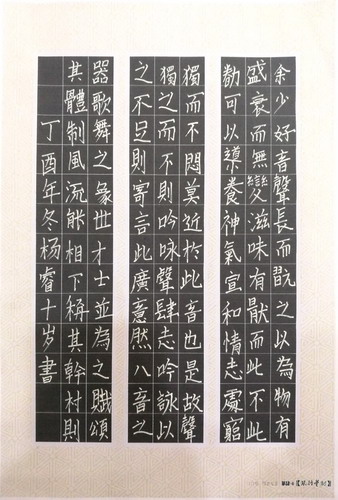 余少好音聲長而翫之以為物有
盛衰而無變滋味有猒而此不此
勌可以導養神氣宣和情志處窮
獨而不悶莫近於此音也是故聲
獨之而不則吟咏聲肆志吟詠以
之不足則寄言此廣意然八音之
器歌舞之象世才士並為之賦頌
其體制風流能相下稱其幹村則
丁酉年冬杨睿十岁書